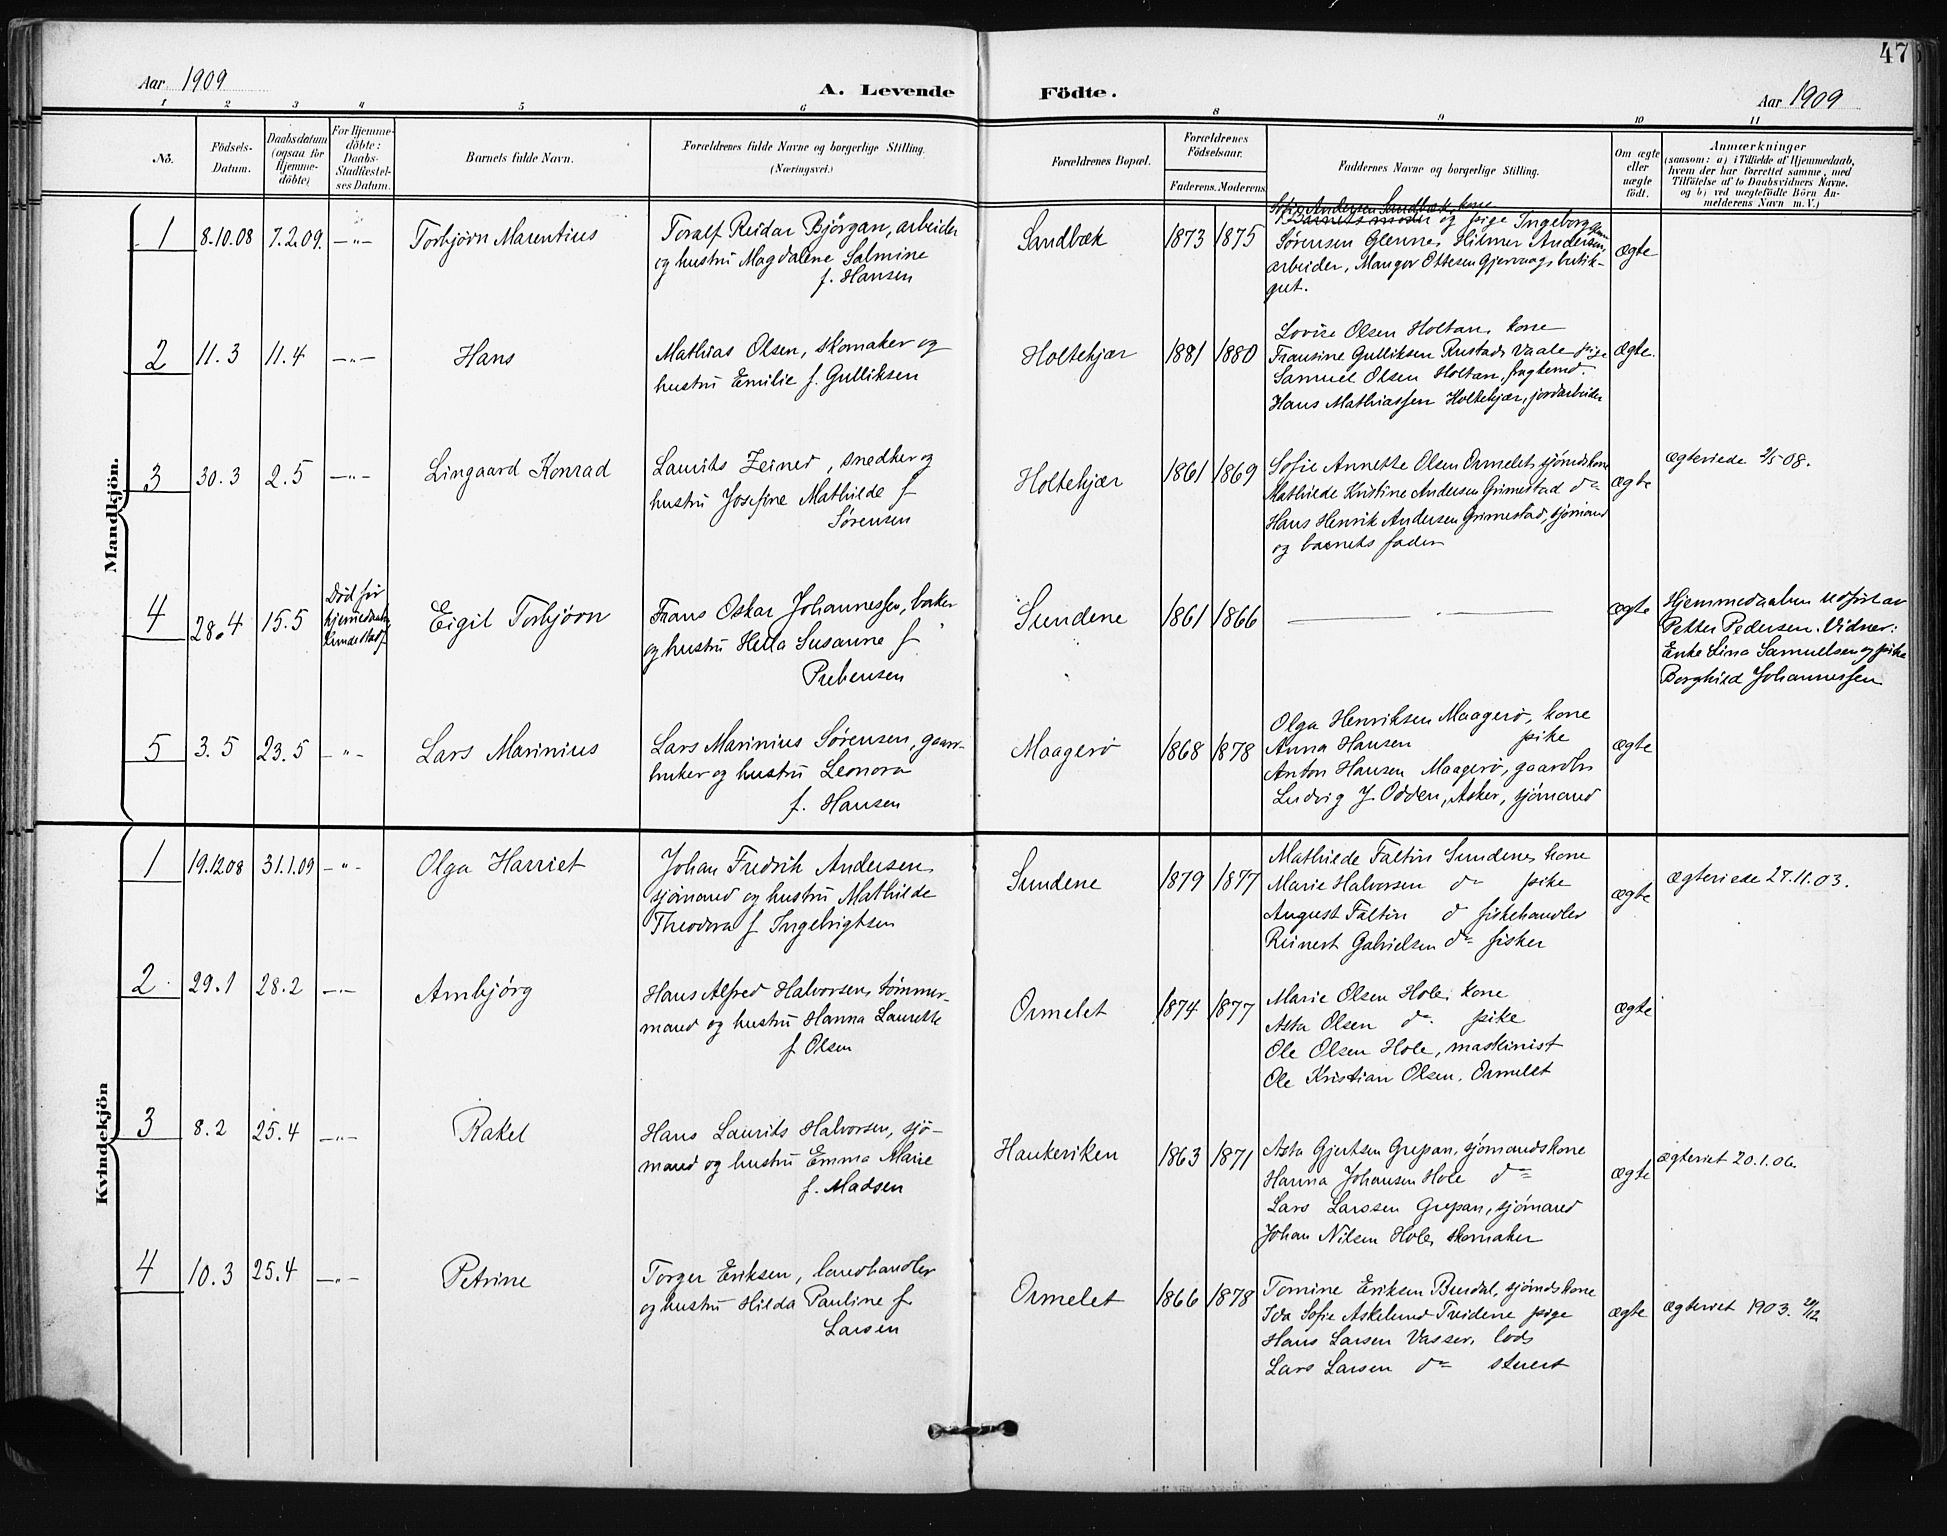 47
Aar 1909
A. Levende Födte.
Aar 1909
1 2 3 4 5 6 8 9 10 11
No.
Födsels-Datum.
Daabsdatum (ogsaa for Hjemme-döbte)
For Hjemme-döbte: Daabs-Stadfestel-ses Datum.
Barnets fulde Navn.
Forældrenes fulde Navne og borgerlige Stilling.
(Næringsvei.)
Forældrenes Bopæl.
Forældrenes Födselsaar.
Faderens. Moderens.
Faddernes Navne og borgerlige Stilling.
Om ægte eller uægte födt.
Anmærkninger
(saasom: a) i Tilfælde af Hjemmedaab,
hvem der har forrettet samme, med
Tilföielse af to Daabsvidners Navne.
og b) ved uægtefödte Börn An-
melderens Navn m. V.)
Mandkjön.
1 8.10.08 7.2.09. —"— Torbjørn Marentius
Toralf Reidar Bjørgan, arbeider
og hustru Magdalene Salmine
f. Hansen
Sandbæk 1873 1875
Andersen Sandbæk, kone
Barnets moder og pige Ingeborg
Sørensen Glenne, Hilmer Andersen,
arbeider, Mangor Ottesen Gjervaag, butik-
gut.
ægte
2 11.3 11.4 —"— Hans
Mathias Olsen, skomaker og
hustru Emilie f. Gulliksen
Holtekjær 1881 1880
Lovise Olsen Holtan, kone
Fransine Gulliksen Rustad, Vaale pige
Samuel Olsen Holtan, fragtemd.
Hans Mathiassen Holtekjær, jordarbeider
ægte.
3 30.3 2.5 —"— Lingaard Konrad
Laurits Zeiner, snedker og
hustru Josefine Mathilde f
Sørensen
Holtekjær 1861 1869
Sofie Annette Olsen Ormelet, sjømdskone
Mathilde Kristine Andersen Grimestad do
Hans Henrik Andersen Grimestad, sjømand
og barnets fader
ægte
ægteviede 2/5-08.
4 28.4 15.5
Død før
Eigil Torbjørn
Frans Oskar Johannessen, baker
og hustru Hella Susanne f
Prebensen
Sundene 1861 1866
ægte
Hjemmedaaben udført av
Petter Pedersen. Vidner:
Enke Lina Samuelsen og pike
Borghild Johannessen
5 3.5 23.5 —"— Lars Marinius
Lars Marinius Sørensen, gaar-
bruker og hustru Leonora
f. Hansen
Maagerø 1868 1878
Olga Henriksen Maagerø, kone
Anna Hansen pike
Anton Hansen Maagerø, gaardbr
Ludvig J. Odden, Asker, sjømand
ægte
Kvindekjön
1 19.12.08 31.1.09 —"— Olga Harriet
Johan Fredrik Andersen
sjømand og hustru Mathilde
Theodora f Ingebrigtsen
Sundene 1879 1877
Mathilde Faltin Sundene, kone
Marie Halvorsen do pike
August Faltin do fiskehandler
Reinert Gabrielsen do fisker
ægte
ægteviede 27.11.03.
2 29.1 28.2 —"— Arnbjørg
Hans Alfred Halvorsen, tømmer-
mand og hustru Hanna Laurette
f Olsen
Ormelet 1874 1877
Marie Olsen Hole, kone
Asta Olsen do pike
Ole Olsen Hole, maskinist
Ole Kristian Olsen, Ormelet
ægte
3 8.2 25.4 —"— Rakel
Hans Laurits Halvorsen, sjø-
mand og hustru Emma Marie
f. Madsen
Haukeriken 1863 1871
Asta Gjertsen Grepan, sjømandskone
Hanna Johansen Hole do
Lars Larssen Grepan, sjømand
Johan Nilsen Hole, skomaker
ægte
ægteviet 20.1.06.
4 10.3 25.4 —"— Petrine
Torger Eriksen, landhandler
og hustru Hilda Pauline f
Larsen
Ormelet 1866 1878
Tomine Eriksen Burdal, sjømdskone
Ida Sofie Askelund Treidene pige
Hans Larsen Vasser, lods
Lars Larsen do stuert
ægte
ægteviet 1903. 29/12